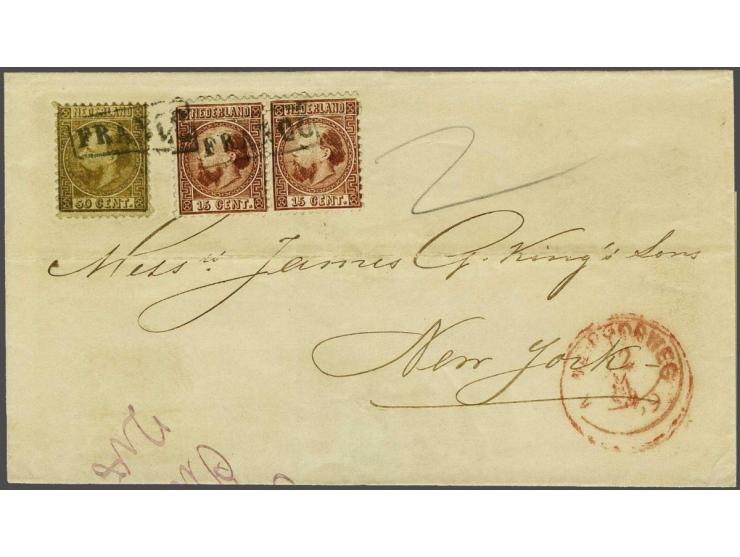 NEDERLAND NEDERLAND NEDERLAND
FRANCO FRANCO
50 CENT. 15 CENT. 15 CENT.
Mess.rs James G. King's Sons
New York